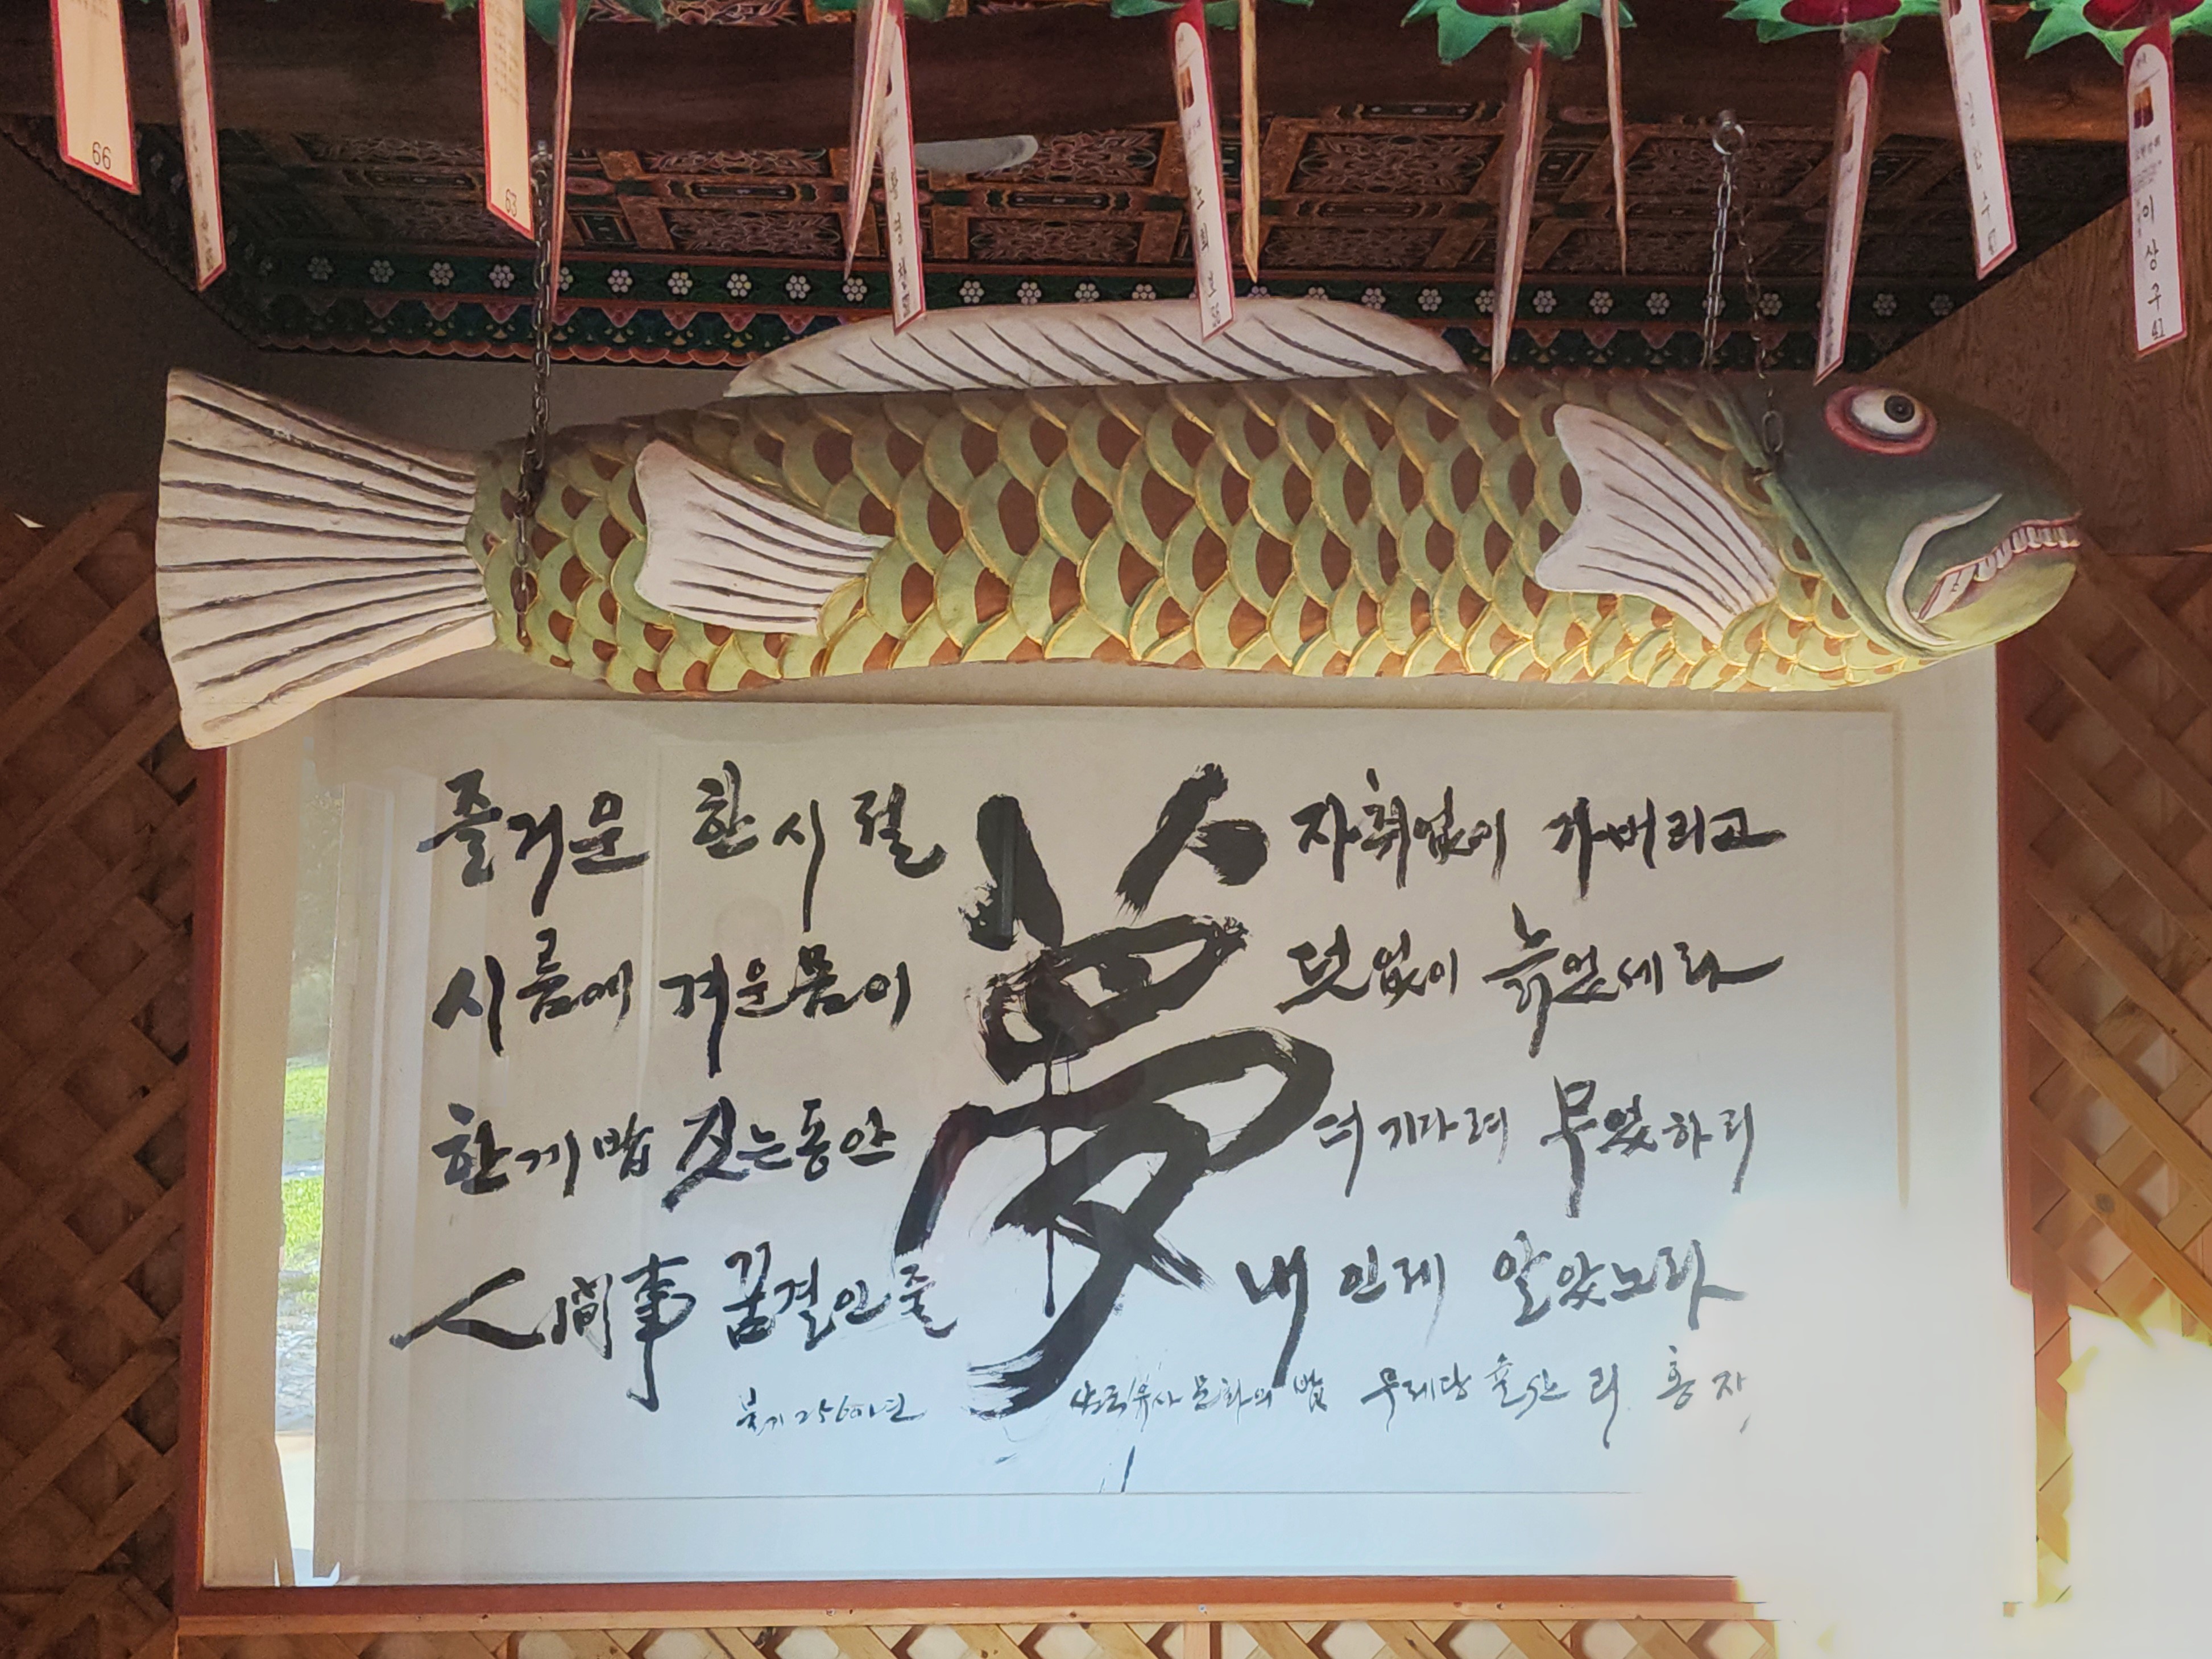 66
63
이상구
42
夢
즐거운 한시절 자취없이 가버리고
시름에 겨운몸이 덧없이 늙었세라
한게 밥 짓는동안 더 기다려 무엇하리
人間事 꿈결인줄 내 인제 알았노라
불기 2560년 삼국유사 문화의 밤